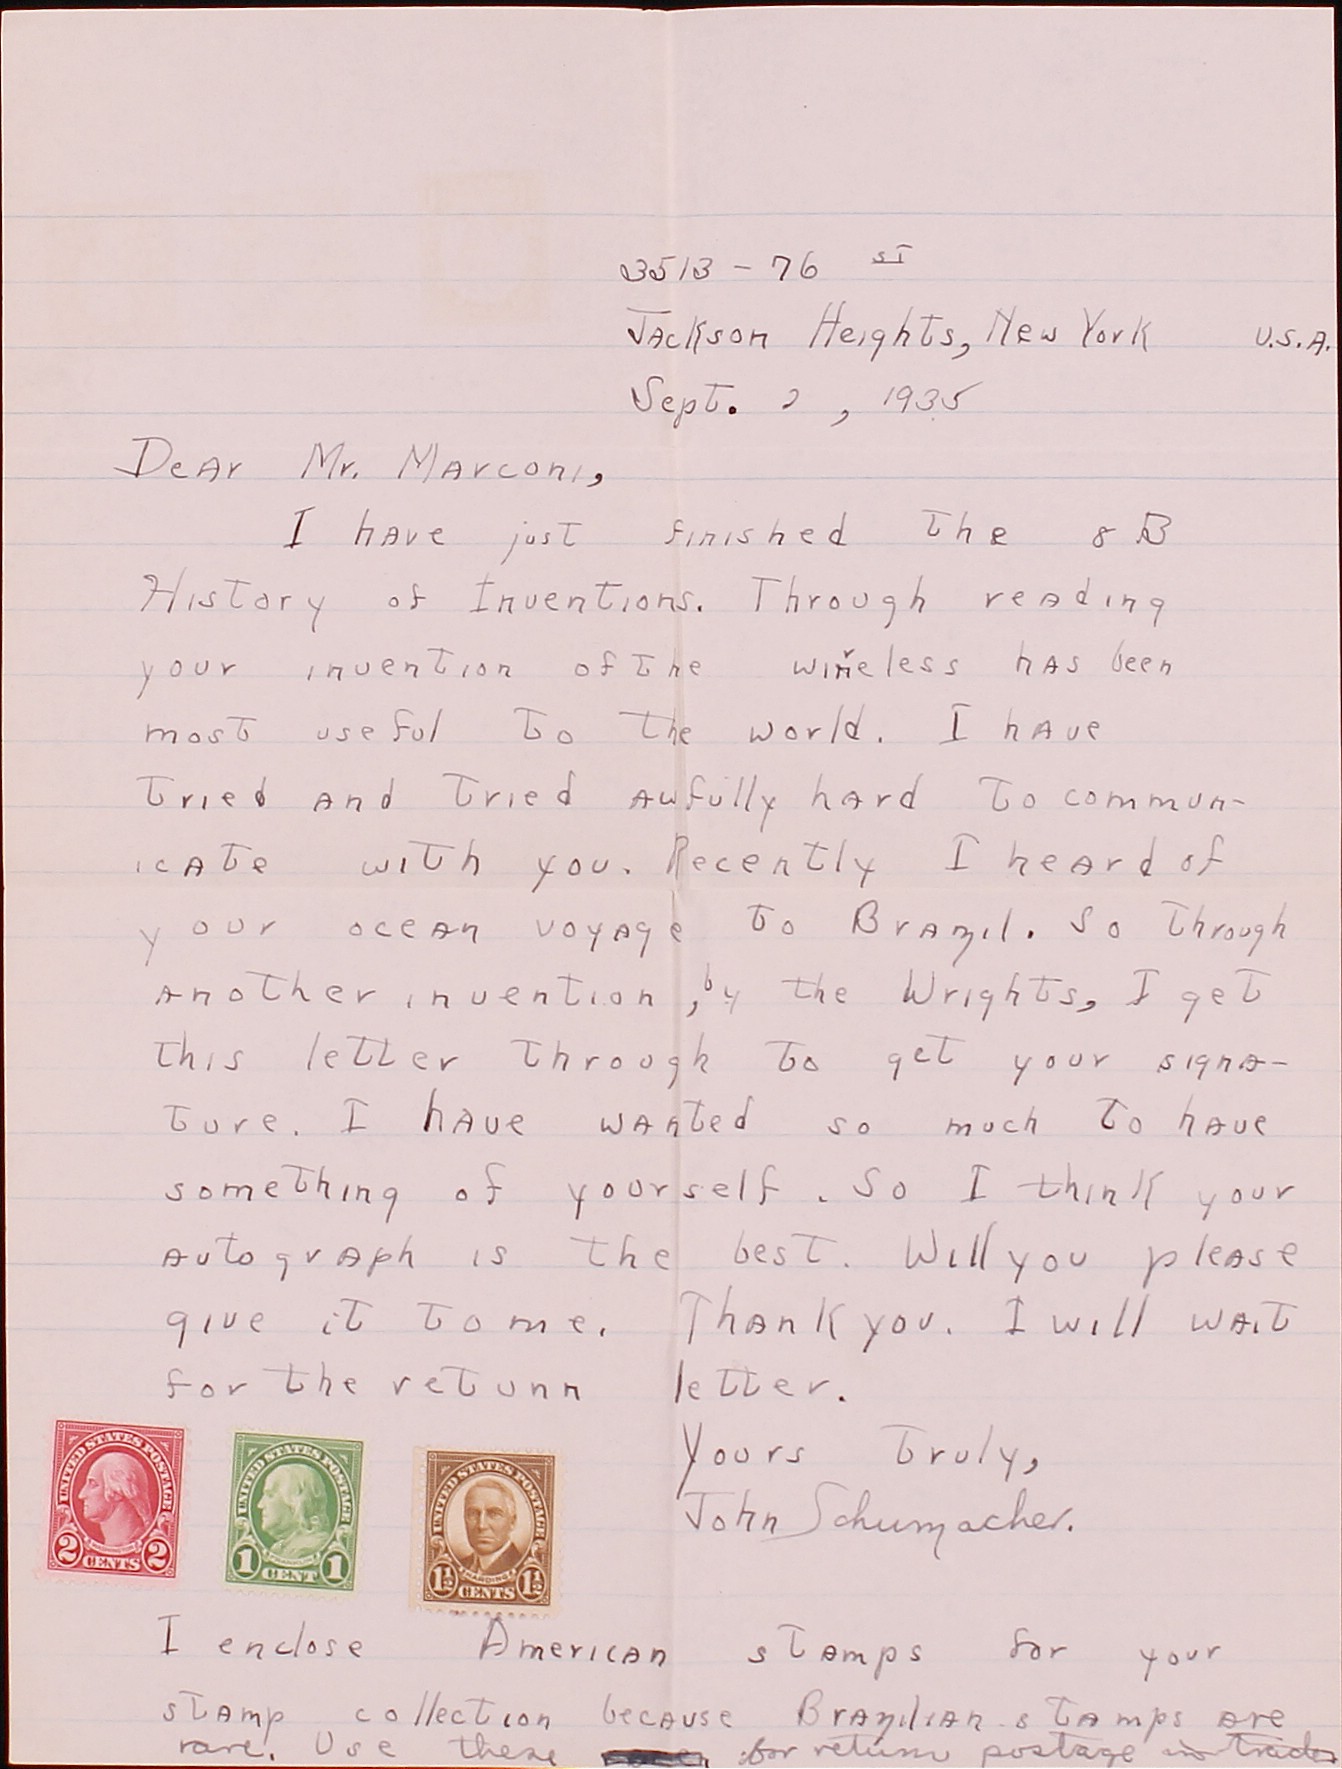 3513 - 76 ST
Jackson Heights, New York U.S.A.
Sept. 2, 1935
Dear Mr. Marconi,
I have just finished the 8B
History of Inventions. Through reading
your invention of the wireless has been
most useful to the world. I have
tried and tried awfully hard to commun-
icate with you. Recently I heard of
your ocean voyage to Brazil. So through
another invention, by the Wrights, I get
this letter through to get your signa-
ture. I have wanted so much to have
something of yourself. So I think your
autograph is the best. Will you please
give it to me. Thank you. I will wait
for the retunn letter.
Yours truly,
John Schumacher.
UNITED STATES POSTAGE
WASHINGTON
2 CENTS 2
UNITED STATES POSTAGE
FRANKLIN
1 CENT 1
UNITED STATES POSTAGE
HARDING
1½ CENTS 1½
I enclose American stamps for your
stamp collection because Brazilian stamps are
rare. Use these for return postage in trade